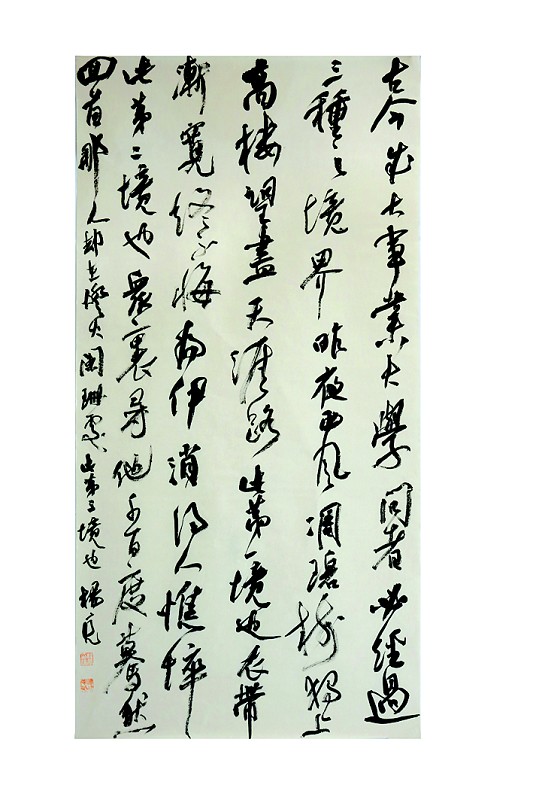 古今成大事業大學問者必經過
三種之境界昨夜西風凋碧樹獨上
高樓望盡天涯路此第一境也衣帶
漸寬終不悔為伊消得人憔悴
此第二境也衆裏尋他千百度驀然
回首那人却在燈火闌珊處此第三境也楊